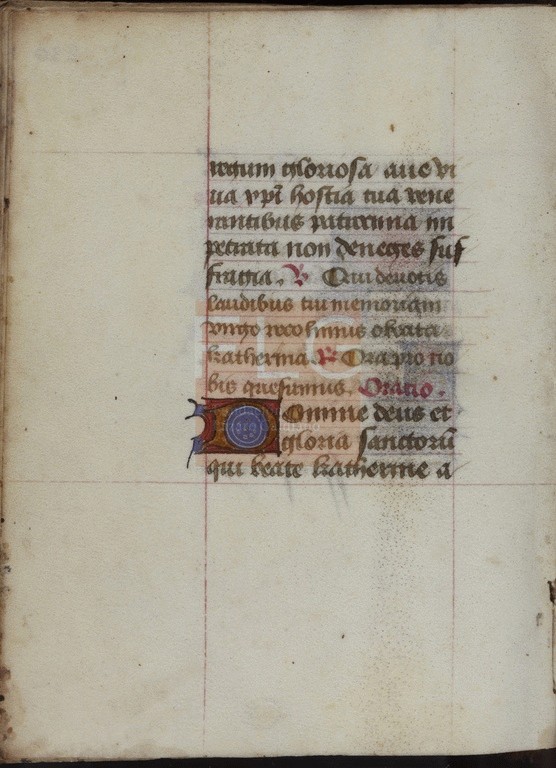 regum gloriosa aue vi
ua xpi hostia tua vene
rantibus katherina im
petrata non deneges suf
fragia. V Qui deuotis
laudibus tui memoriam
virgo recolimus o beata
katherina R Ora pro no
bis quesumus. Oratio.
Domine deus et
gloria sanctorū
qui beate katherine a